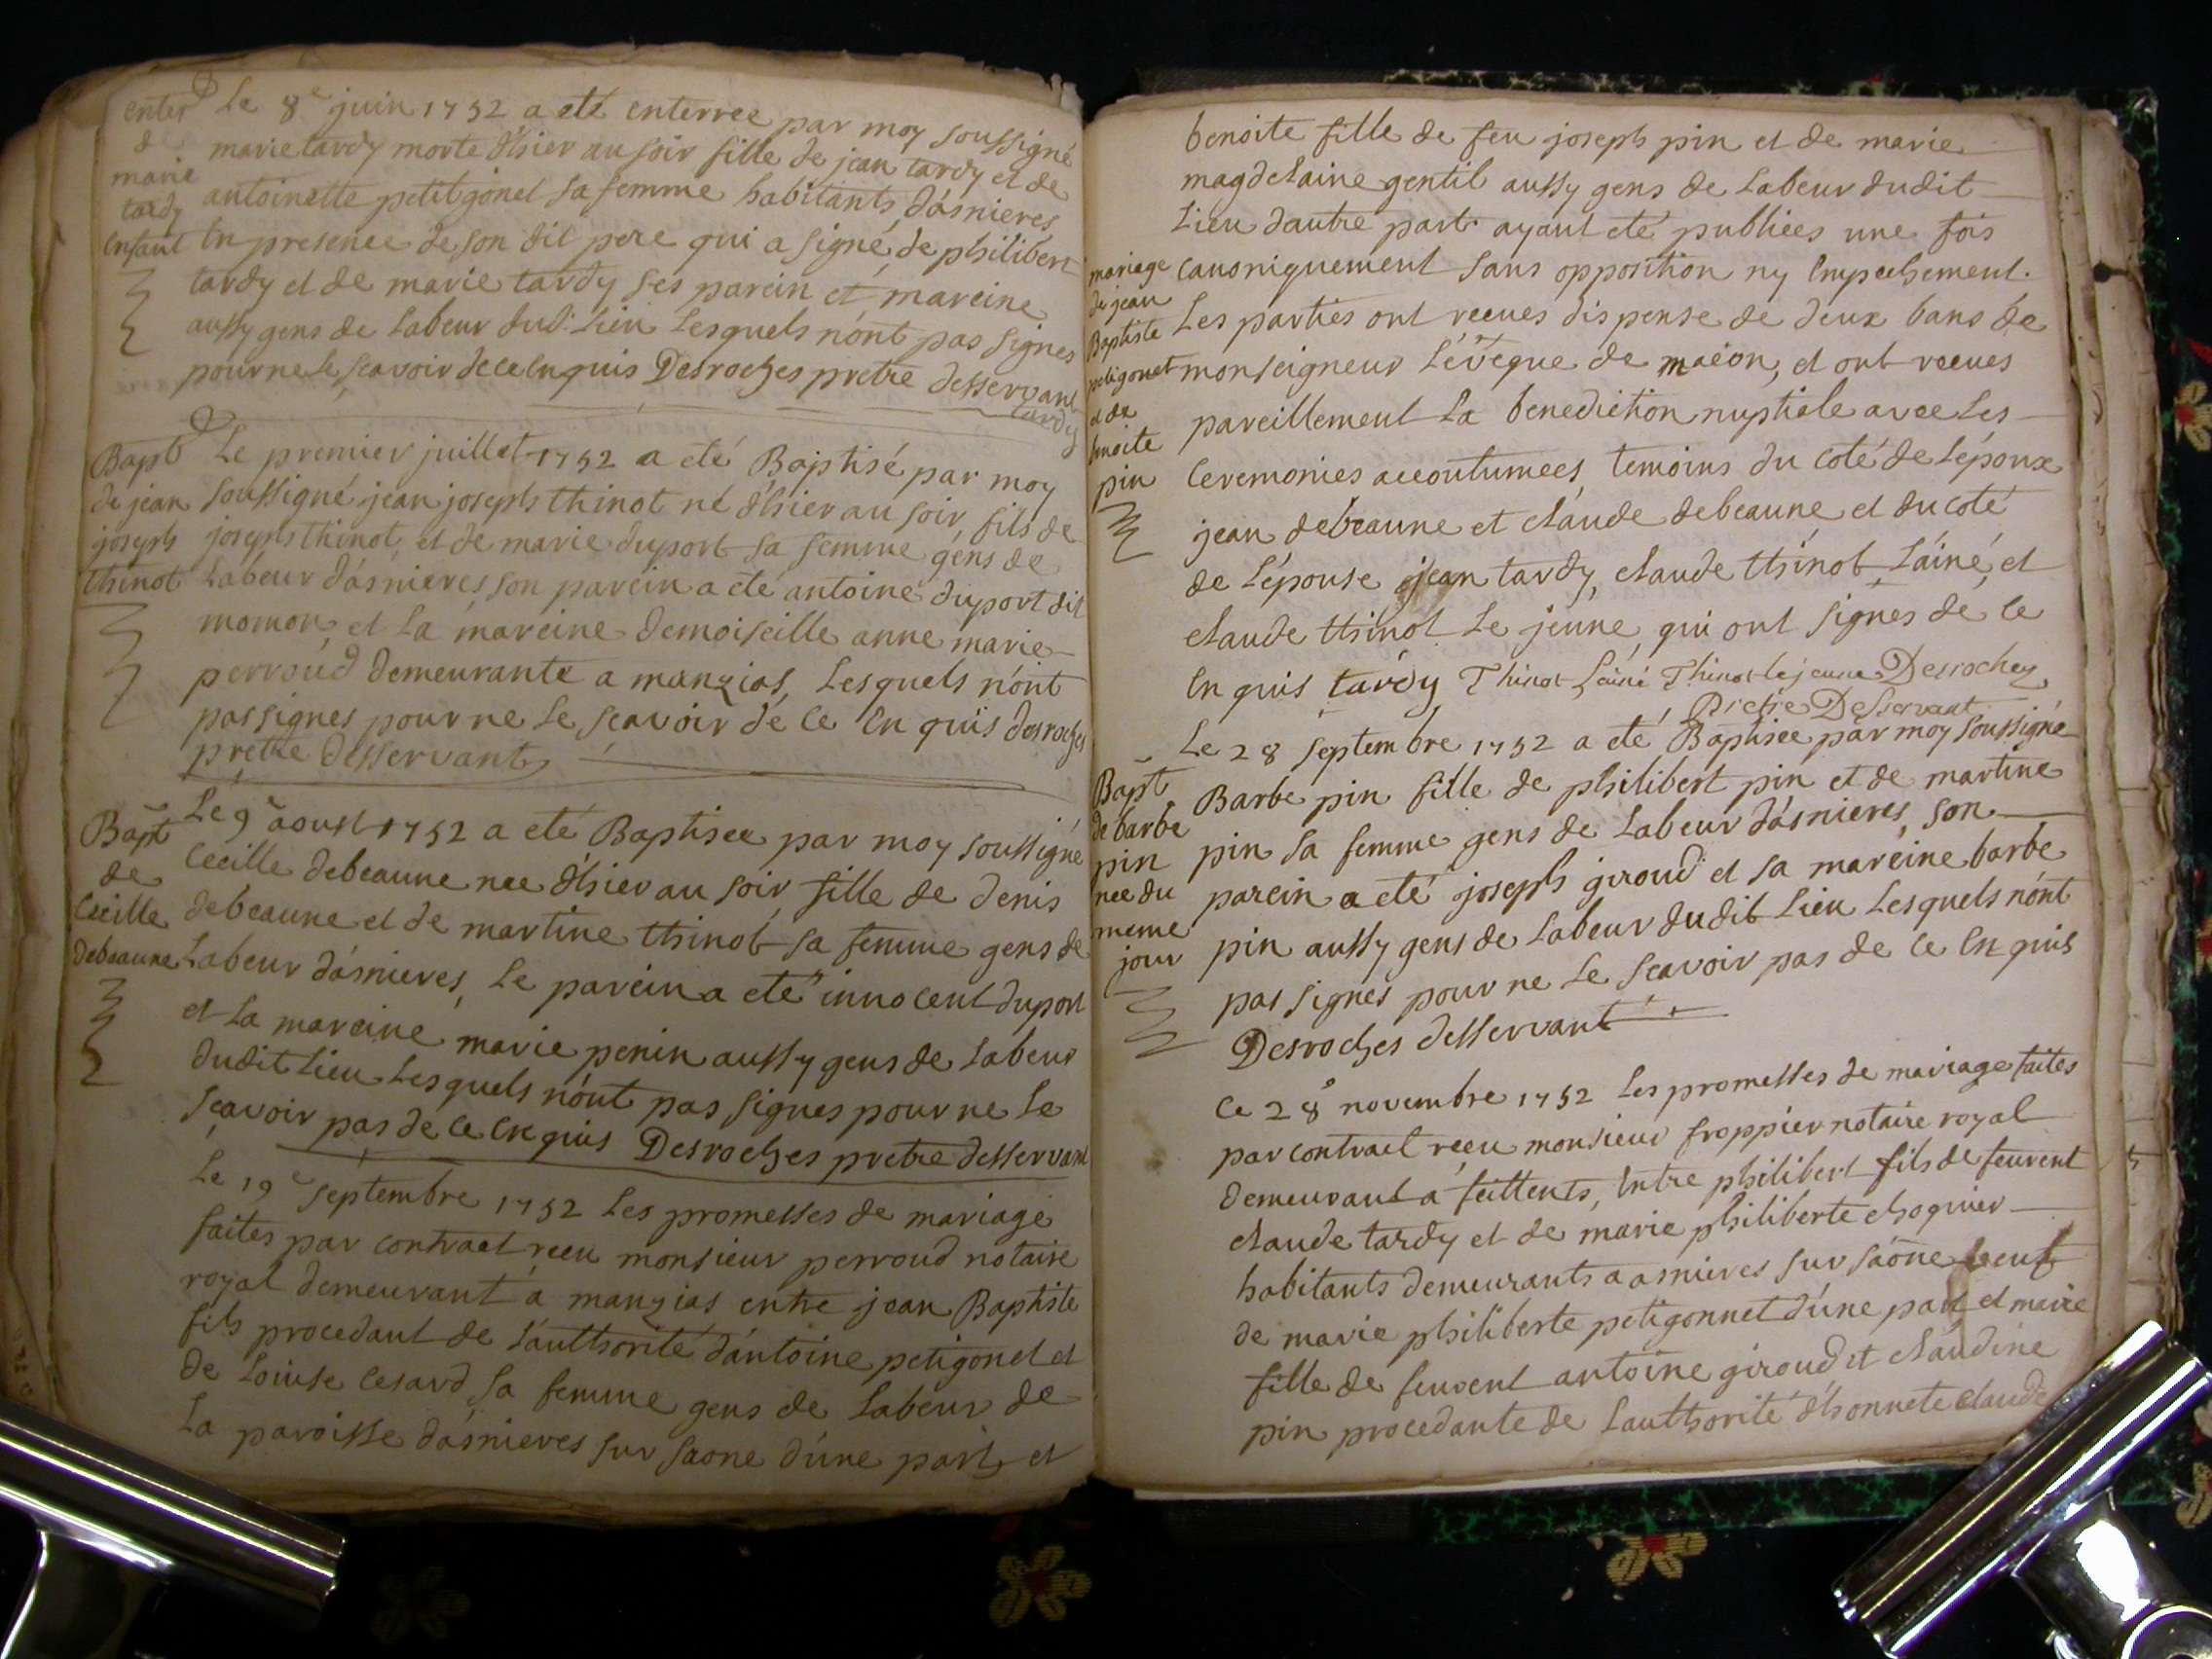 enter
de
marie
tardy
enfant
Le 8e juin 1752 a eté enterree par moy soussigné
marie tardy morte d'hier au soir fille de jean tardy et de
antoinette petitgonet sa femme habitants d'asnieres
en presence de son dit pere qui a signé, de philibert
tardy et de marie tardy ses parein et mareine
aussy gens de labeur dud. lieu lesquels n'ont pas signes
pour ne le scavoir de ce enquis Desroches pretre desservant
tardy
Bapt
de jean
joseph
thinot
Le premier juillet 1752 a eté Baptisé par moy
soussigné jean joseph thinot né d'hier au soir, fils de
joseph thinot, et de marie duport sa femme gens de
labeur d'asnieres, son parein a eté antoine duport dit
momon, et la mareine demoiselle anne marie
perroud demeurante a manzias, lesquels n'ont
pas signes pour ne le scavoir de ce enquis desroches
pretre desservant
Bapt
de
Cecille
debeaune
Le 9e aoust 1752 a eté Baptisee par moy soussigné
Cecille debeaune nee d'hier au soir fille de denis
debeaune et de martine thinot sa femme gens de
labeur d'asnieres, le parein a eté innocent duport
et la mareine marie penin aussy gens de labeur
dudit lieu lesquels n'ont pas signes pour ne le
scavoir pas de ce enquis Desroches pretre desservant
Le 19e septembre 1752 les promesses de mariage
faites par contract reçu monsieur perroud notaire
royal demeurant a manzias entre jean Baptiste
fils procedant de l'authorité d'antoine petigonet et
de Louise Cesard sa femme gens de labeur de
la paroisse d'asnieres sur saone d'une part, et
benoite fille de feu joseph pin et de marie
magdelaine gentil aussy gens de labeur dudit
lieu d'autre part ayant eté publiees une fois
canoniquement sans opposition ny empechement.
mariage
de jean
Baptiste
petigonet
et de
benoite
pin
Les parties ont recues dispense de deux bans de
monseigneur l'évêque de macon, et ont recues
pareillement la benediction nuptiale avec les
ceremonies accoutumees, temoins du coté de l'époux
jean debeaune et claude debeaune et du coté
de l'épouse jean tardy, claude thinot l'ainé, et
claude thinot le jeune, qui ont signes de ce
enquis tardy Thinot Lainé Thinot le jeune Desroches
Pretre Desservant
Bapt
de barbe
pin
nee du
meme
jour
Le 28 septembre 1752 a eté Baptisee par moy soussigné
Barbe pin fille de philibert pin et de martine
pin sa femme gens de labeur d'asnieres, son
parein a eté joseph giroud et sa mareine barbe
pin aussy gens de labeur dudit lieu lesquels n'ont
pas signes pour ne le scavoir pas de ce enquis
Desroches desservant
Ce 28e novembre 1752 les promesses de mariage faites
par contract reçu monsieur froppier notaire royal
demeurant a feillents, entre philibert fils de feuvent
claude tardy et de marie philiberte choquier
habitants demeurants a asnieres sur saône veuf
de marie philiberte petigonnet d'une part et marie
fille de feuvent antoine giroud et claudine
pin procedante de l'authorité d'honnete claude